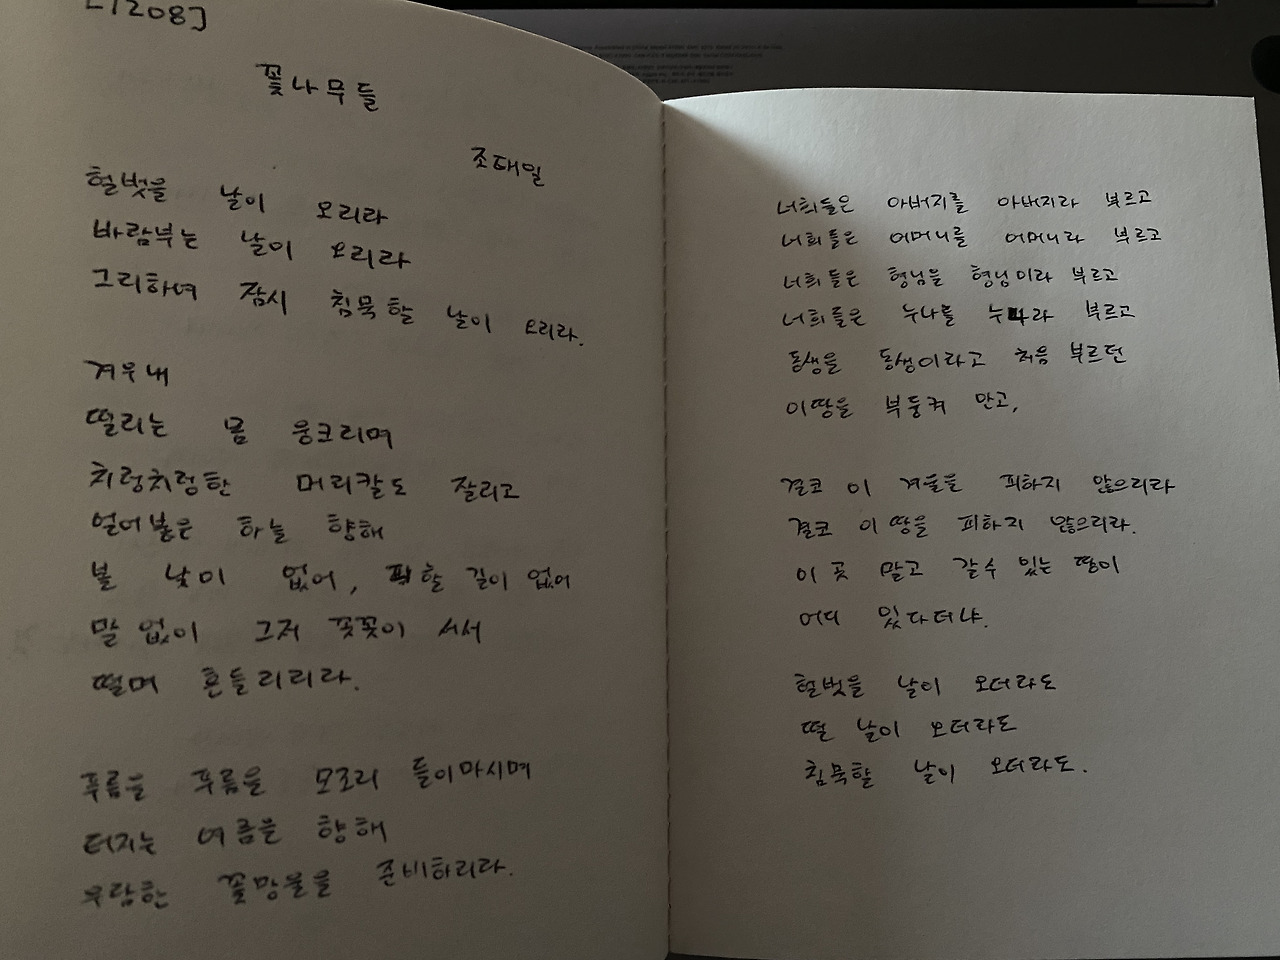 [1208]
꽃나무들
조태일
헐벗을 날이 오리라
바람부는 날이 오리라
그리하여 잠시 침묵할 날이 오리라.
겨우내
떨리는 몸 웅크리며
치렁치렁한 머리칼도 잘리고
얼어붙은 하늘 향해
볼 낯이 없어, 피할 길이 없어
말없이 그저 꼿꼿이 서서
떨며 흔들리리라.
푸름을 푸름을 모조리 들이마시며
터지는 여름을 향해
우람한 꽃망울을 준비하리라.
너희들은 아버지를 아버지라 부르고
너희들은 어머니를 어머니라 부르고
너희들은 형님을 형님이라 부르고
너희들은 누나를 누나라 부르고
동생을 동생이라고 처음 부르던
이땅을 부둥켜 안고,
결코 이 겨울을 피하지 않으리라
결코 이 땅을 피하지 않으리라.
이 곳 말고 갈수 있는 땅이
어디 있다더냐.
헐벗을 날이 오더라도
떨 날이 오더라도
침묵할 날이 오더라도.